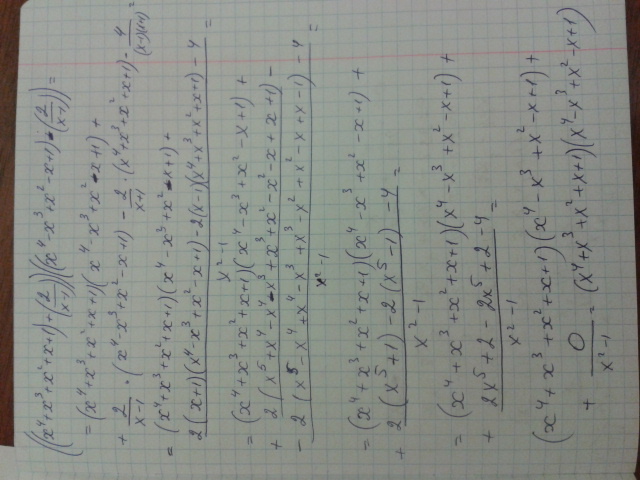 ((x⁴+x³+x²+x+1)+(2/(x-1)))((x⁴-x³+x²-x+1)-(2/(x-1)))=
=(x⁴+x³+x²+x+1)(x⁴-x³+x²-x+1)+
+ 2/(x-1) · (x⁴-x³+x²-x+1) - 2/(x+1) · (x⁴+x³+x²+x+1) - 4/((x-1)(x+1)) =
=(x⁴+x³+x²+x+1)(x⁴-x³+x²-x+1)+
2(x+1)(x⁴-x³+x²-x+1)-2(x-1)(x⁴+x³+x²+x+1)-4 =
x²-1
=(x⁴+x³+x²+x+1)(x⁴-x³+x²-x+1)+
+ 2(x⁵+x⁴-x⁴-x³+x³+x²-x²-x+x+1)-
- 2(x⁵-x⁴+x⁴-x³+x³-x²+x²-x+x-1)-4 =
x²-1
=(x⁴+x³+x²+x+1)(x⁴-x³+x²-x+1)+
+ 2(x⁵+1)-2(x⁵-1)-4 =
x²-1
=(x⁴+x³+x²+x+1)(x⁴-x³+x²-x+1)+
+ 2x⁵+2-2x⁵+2-4 =
x²-1
(x⁴+x³+x²+x+1)(x⁴-x³+x²-x+1)+
+ 0/(x²-1) = (x⁴+x³+x²+x+1)(x⁴-x³+x²-x+1)